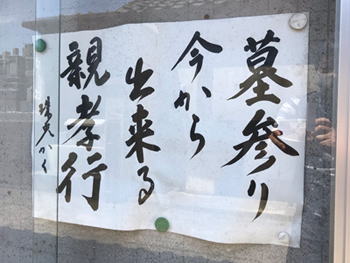 墓参り
今から
出来る
親孝行